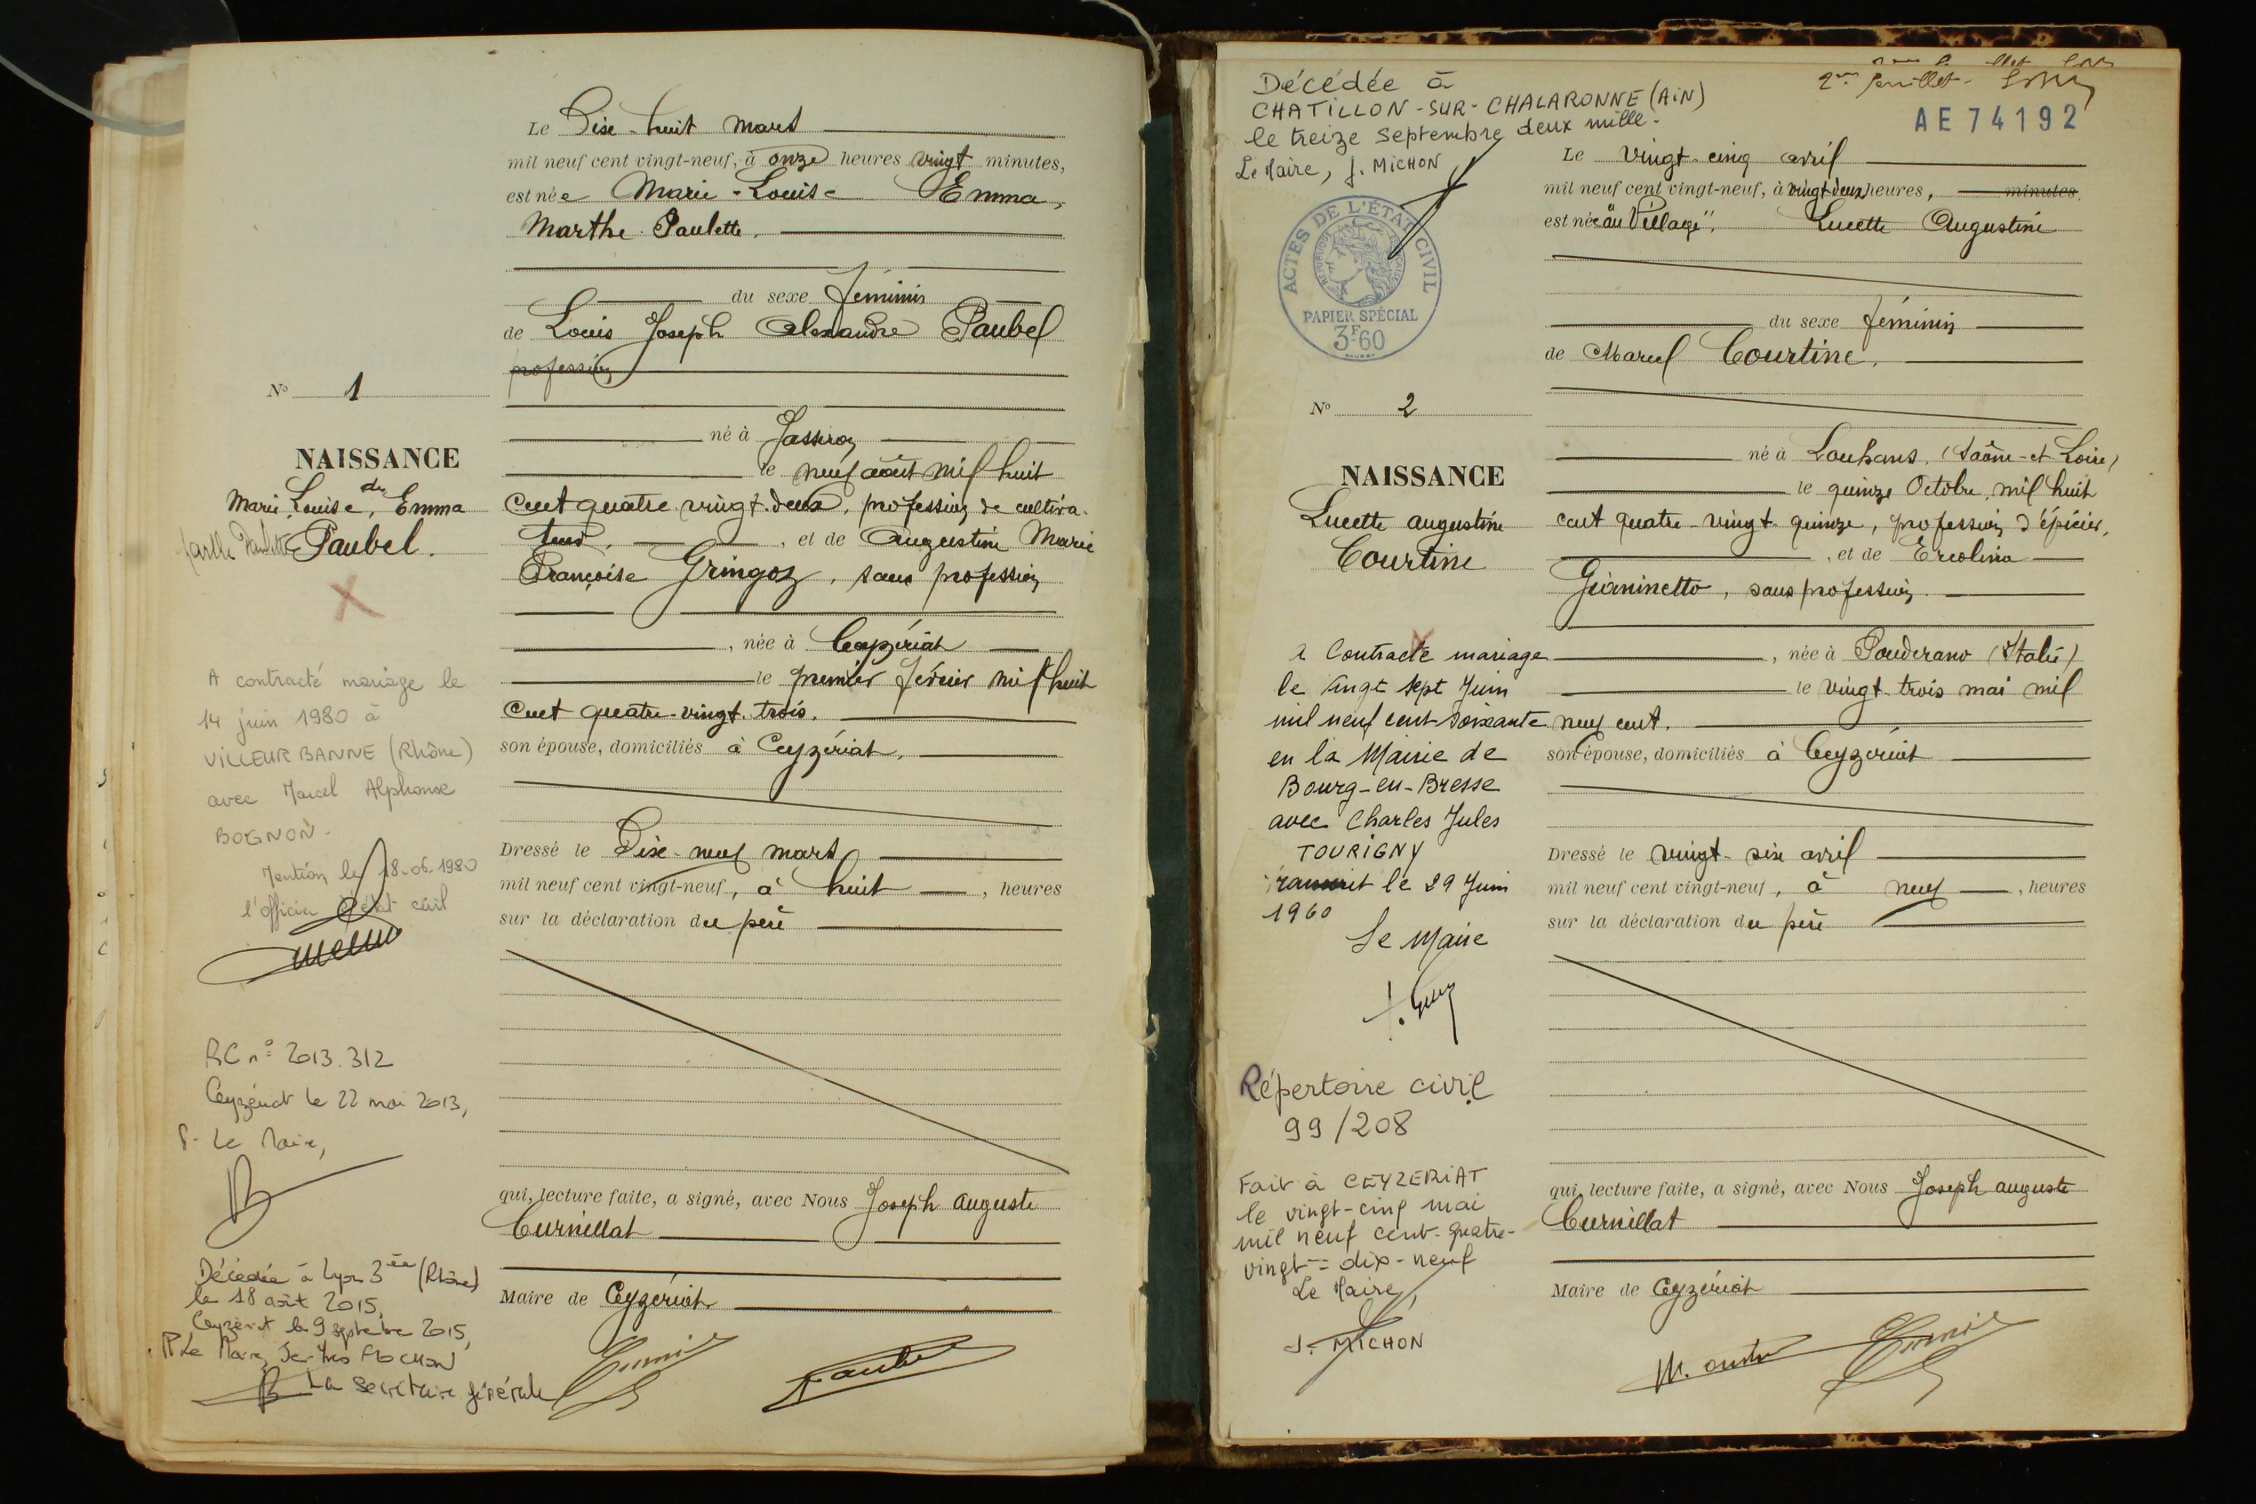 Le Dix-huit mars
mil neuf cent vingt-neuf, à onze heures vingt minutes,
est née Marie-Louise Emma,
Marthe Paulette.
du sexe féminin
de Louis Joseph Alexandre Paubel
profession
né à Jasseron
le neuf août mil huit
cent quatre vingt deux, profession de cultiva-
teur, et de Augustine Marie
Françoise Gringoz, sans profession
, née à Ceyzériat
le premier février mil huit
cent quatre-vingt trois.
son épouse, domiciliés à Ceyzériat.
Dressé le Dix-neuf mars
mil neuf cent vingt-neuf, à huit , heures
sur la déclaration du père
qui, lecture faite, a signé, avec Nous Joseph Auguste
Curnillat
Maire de Ceyzériat
No 1
NAISSANCE
de
Marie Louise, Emma
Marthe Paulette Paubel.
A contracté mariage le
14 juin 1980 à
VILLEURBANNE (Rhône)
avec Marcel Alphonse
BOGNON-
Mention le 18.06.1980
l'officier d'état civil
RC n° 2013.312
Ceyzériat le 22 mai 2013,
P. Le Maire,
Décédée à Lyon 3ème (Rhône)
le 18 août 2015,
Ceyzériat le 9 septembre 2015,
Pr Le Maire, FLOCHON
La Secrétaire générale
Décédée à
CHATILLON-SUR-CHALARONNE (AiN)
le treize Septembre deux mille-
Le Maire, J. MICHON
ACTES DE L'ÉTAT CIVIL
PAPIER SPÉCIAL
3F60
2me feuillet-
AE74192
Le vingt-cinq avril
mil neuf cent vingt-neuf, à vingt deux heures, minutes.
est née "au Village", Lucette Augustine
du sexe féminin
de Marcel Courtine.
né à Louhans, (Saône-et-Loire)
le quinze Octobre, mil huit
cent quatre-vingt-quinze, profession d'épicier,
, et de Ercolina
Gianinetto, sans profession
, née à Ponderano (Italie)
le vingt-trois mai mil
neuf cent.
son épouse, domiciliés à Ceyzériat
Dressé le vingt-six avril
mil neuf cent vingt-neuf, à neuf , heures
sur la déclaration du père
qui, lecture faite, a signé, avec Nous Joseph Auguste
Curnillat
Maire de Ceyzériat
No 2
NAISSANCE
Lucette Augustine
Courtine
a Contracté mariage
le vingt sept Juin
mil neuf cent soixante
en la Mairie de
Bourg-en-Bresse
avec Charles Jules
TOURIGNY
transcrit le 29 Juin
1960
Le Maire
Répertoire civil
99/208
Fait à CEYZERIAT
le vingt-cinq mai
mil neuf cent-quatre-
vingt-dix-neuf
Le Maire,
J. MICHON